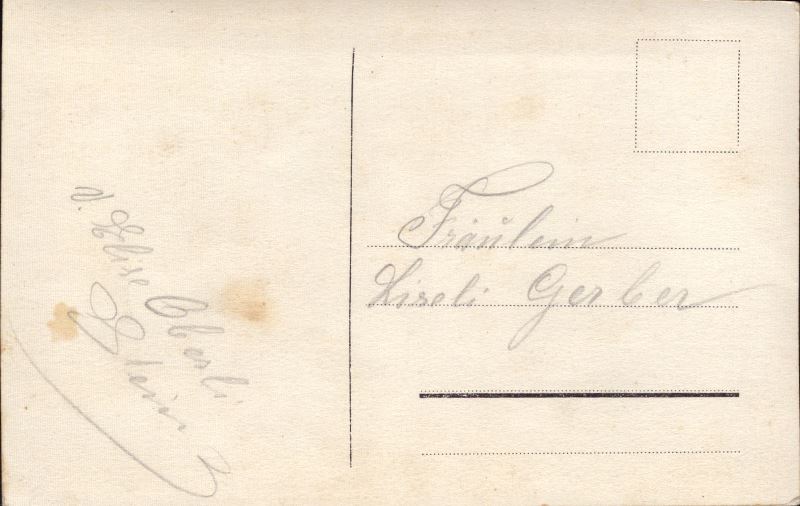 v. Elise Oberli
Stein
Fräulein
Liseli Gerber